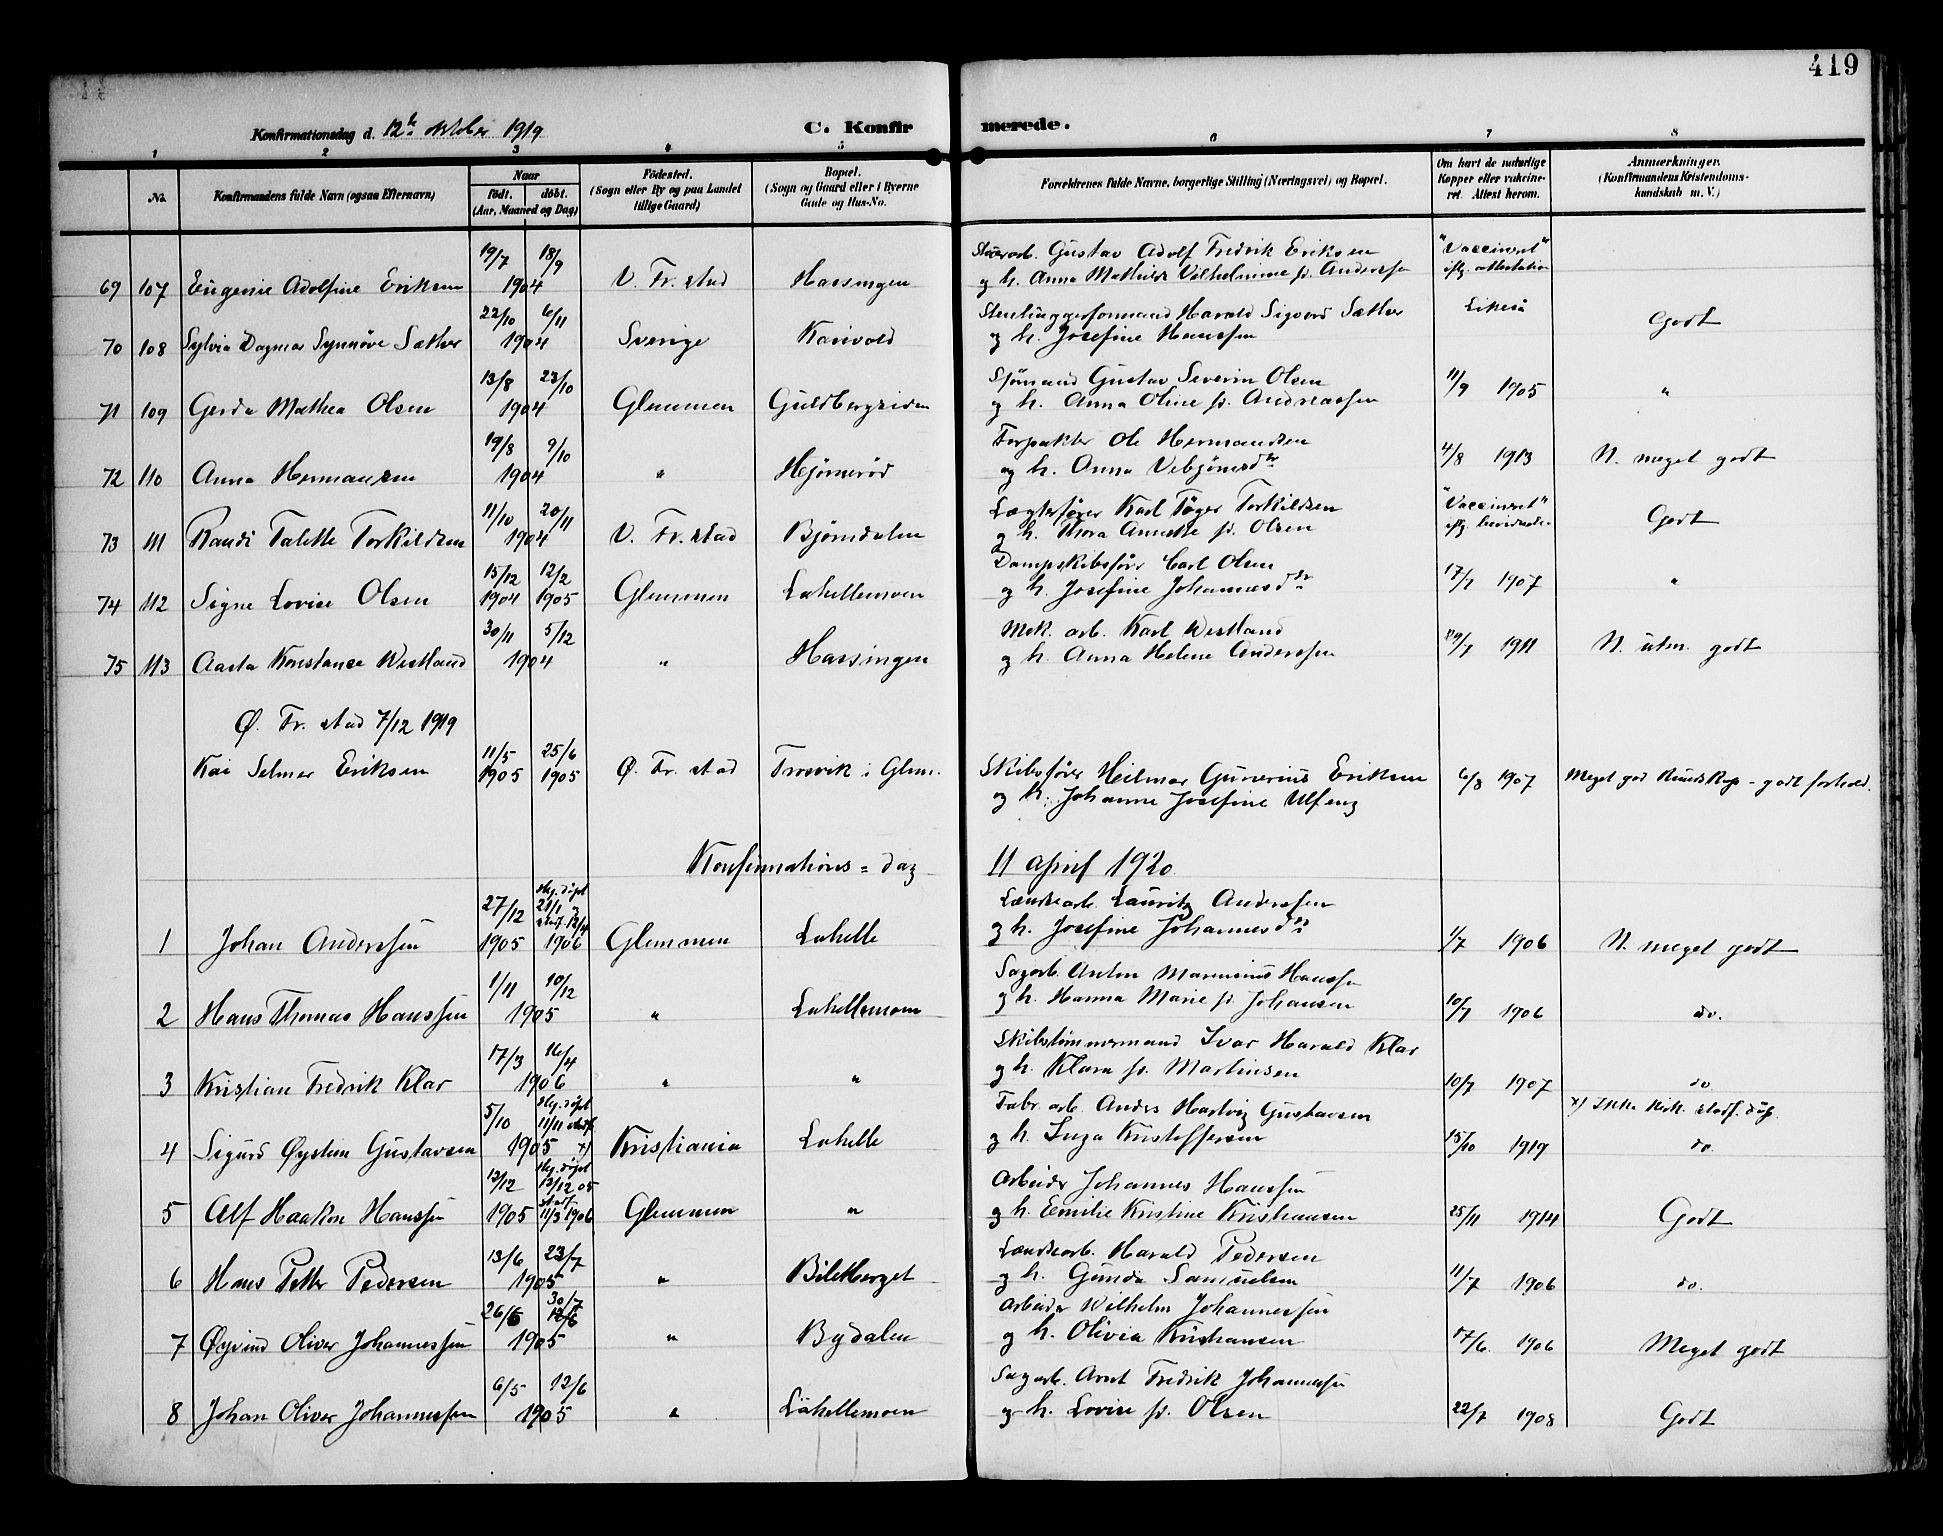 419
Konfirmationsdag d. 12te oktober 1919 C. Konfirmerede.
1 2 3 4 5 6 7 8
No. Konfirmandens fulde Navn (ogsaa Efternavn)
Naar
födt. döbt.
(Aar, Maaned og Dag)
Födested.
(Sogn eller By og paa Landet
tillige Gaard)
Bopæl.
(Sogn og Gaard eller i Byerne
Gade og Hus-No.
Forældrenes fulde Navne, borgerlige Stilling (Næringsvei) og Bopæl.
Om havt de naturlige
Kopper eller vakcine-
ret. Attest herom.
Anmærkninger.
(Konfirmandens Kristendoms-
kundskab m. V.)
19/7 18/9 Gustav Adolf Fredrik Eriksen "Vaccineret"
69 107 Eugenie Adolfine Eriksen 1904 V. Fr. stad Hassingen og h. Anna Mathilde Vilhelmine f. Anderssen iflg. attestation
22/10 6/11 Stenhuggerformand Harald Sigvard Sæther Likeså
70 108 Sylvia Dagmar Synnöve Sæther 1904 Sverige og h. Josefine Hanssen Godt
13/8 23/10 Sjömand Gustav Severin Olsen 11/9 1905
71 109 Gerda Mathea Olsen 1904 Glemmen Guldbergsiden og h. Anna Oline f. Andreassen "
19/8 9/10 Forpakter Ole Hermandsen 4/8 1913
72 110 Anna Hermansen 1904 " Hjörneröd og h. Anna Vebjörnsdtr N. meget godt
11/10 20/11 Lægterförer Karl Töger Torkildsen "Vaccineret"
73 111 Randi Talette Torkildsen 1904 V. Fr. stad Björndalen og h. Thora Annette f. Olsen Godt
15/12 12/2 Dampskibsförer Carl Olsen 17/7 1907
74 112 Signe Lovise Olsen 1904 1905 Glemmen Lahellemoen og h. Josefine Johannesdtr "
30/11 5/12 Mek. arb. Karl Westlund 1911
75 113 Aasta Konstance Westlund 1904 " Hassingen og h. Anna Helene Anderssen N. utm. godt
Ø. Fr. stad 7/12 1919
11/5 25/6
Kai Selmer Eriksen 1905 1905 Ø. Fr. stad Trosvik i Glem. Skibsförer Heilmar Gunerius Eriksen 6/8 1907 Meget god Kundskap - godt forhold.
og h. Johanne Josefine Ulfeng
Konfirmations=dag 11 april 1920
27/12 Hj. döpt 21/1 og stadf. 12/4 Landsarb. Lauritz Anderssen
1 Johan Anderssen 1905 1906 Glemmen Lahelle og h. Josefine Johannesdtr 1/7 1906 N. meget godt
1/11 10/12 Sagarb. Anton Marensius Hanssen
2 Hans Thomas Hanssen 1905 " Lahellemoen og h. Hanna Marie f. Johansen 10/7 1906 do.
17/3 16/4 Skibstömmermand Ivar Harald Klar
3 Kristian Fredrik Klar 1906 " " og h. Klara f. Martinsen 10/7 1907 do
5/10 Hj. döpt 11/11 stadf. Fabr. arb. Anders Hartvig Gustavsen x) Ikke kirk. stadf. dåp.
4 Sigurd Öystein Gustavsen 1905 x) Kristiania Lahelle og h. Inga Kristoffersen 15/10 1919 do.
13/12 Hj. döpt 13/12 05 Arbeider Johannes Hanssen
5 Alf Haakon Hanssen 1905 stadf. 11/3 1906 Glemmen " og h. Emilie Kristine Kristiansen 25/11 1914 Godt
13/6 23/7 Landsarb. Harald Pedersen
6 Hans Petter Pedersen 1905 " Bilitberget og h. Gunda Samuelsen 11/7 1906 do.
26/6 30/7 12/6 Arbeider Wilhelm Johannessen
7 Öyvind Oliver Johannessen 1905 " Bydalen og h. Olivia Kristiansen 17/6. 1906 Meget godt
6/5 12/6 Sagarb. Arnt Fredrik Johannessen
8 Johan Oliver Johannessen 1905 " Lahellemoen og h. Lovise f. Olsen 22/7 1908 Godt